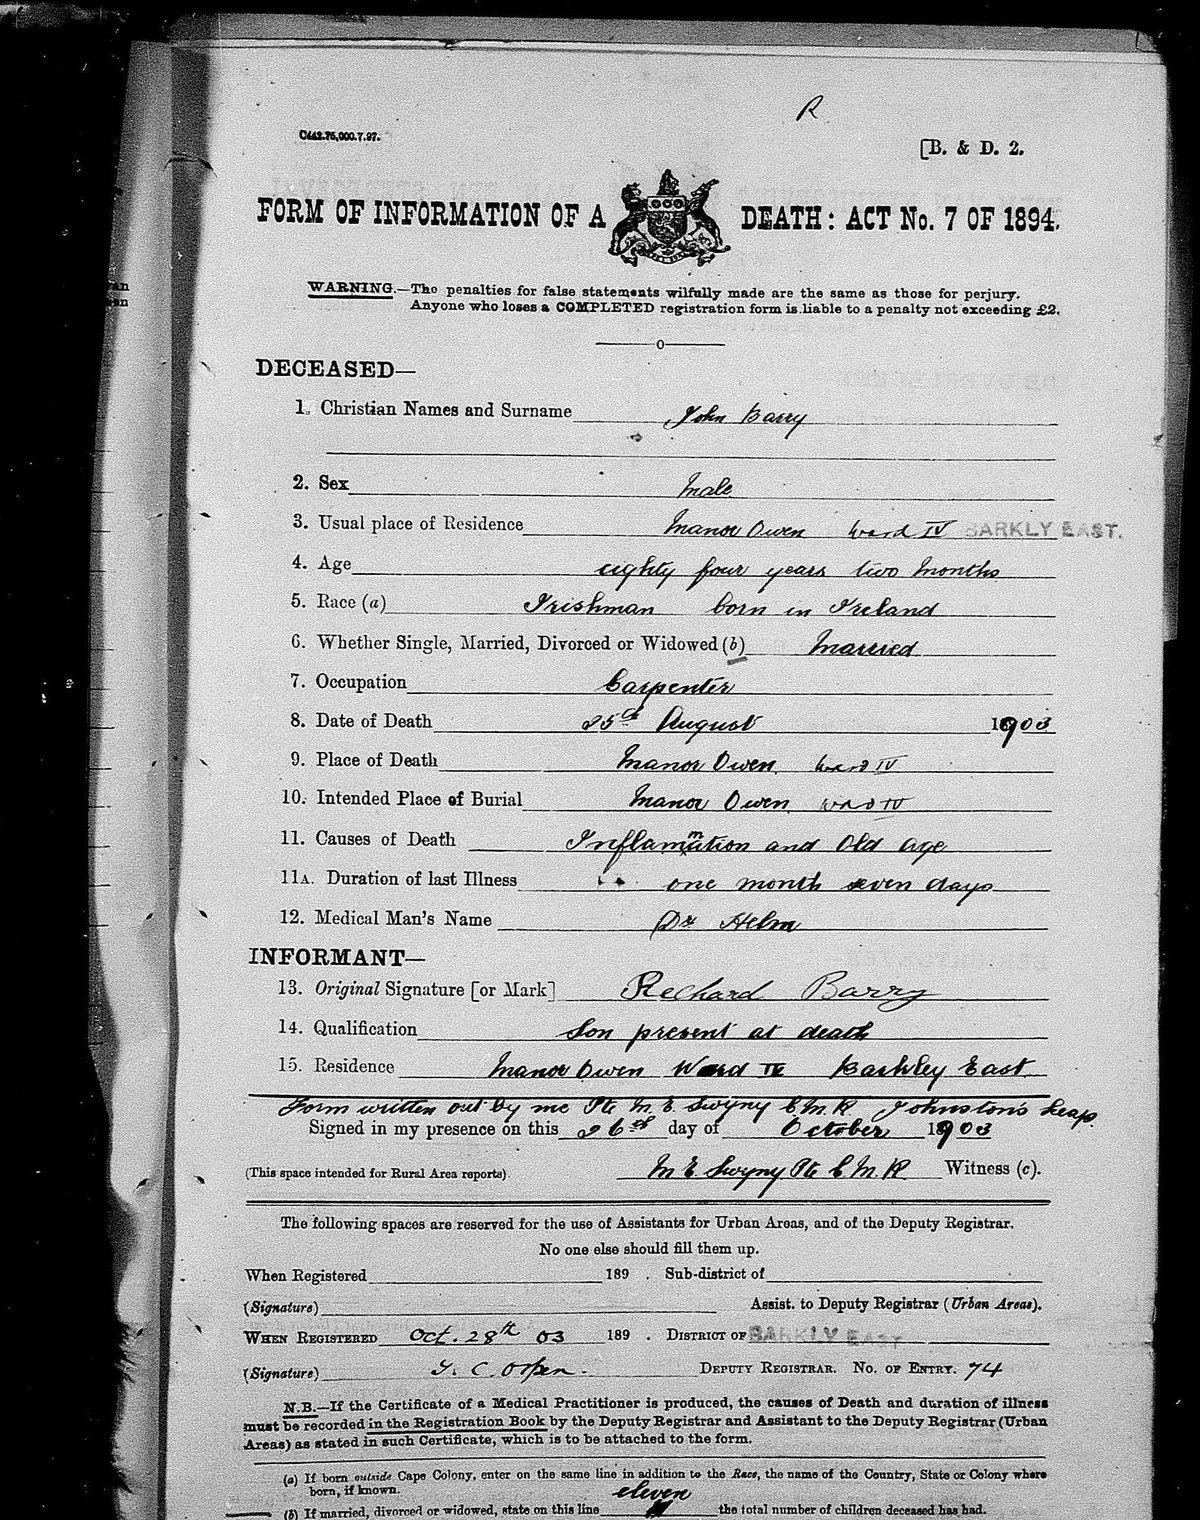 R
C442.75,000.7.97.
[B. & D. 2.
FORM OF INFORMATION OF A DEATH: ACT No. 7 OF 1894.
WARNING.—The penalties for false statements wilfully made are the same as those for perjury.
Anyone who loses a COMPLETED registration form is liable to a penalty not exceeding £2.
DECEASED—
1. Christian Names and Surname John Barry
2. Sex Male
3. Usual place of Residence Manor Owen Ward IV BARKLY EAST.
4. Age eighty four years two months
5. Race (a) Irishman born in Ireland
6. Whether Single, Married, Divorced or Widowed (b) Married
7. Occupation Carpenter
8. Date of Death 25th August 1903
9. Place of Death Manor Owen Ward IV
10. Intended Place of Burial Manor Owen Ward IV
11. Causes of Death Inflammation and Old age
11A. Duration of last Illness one month seven days
12. Medical Man's Name Dr Helm
INFORMANT—
13. Original Signature [or Mark] Rechard Barry
14. Qualification Son present at death
15. Residence Manor Owen Ward IV Barkley East
Form written out by me Pte M. E. Swyny C.M.R Johnston's Leap
Signed in my presence on this 26th day of October 1903
(This space intended for Rural Area reports) M E Swyny Pte C.M.R. Witness (c).
The following spaces are reserved for the use of Assistants for Urban Areas, and of the Deputy Registrar.
No one else should fill them up.
When Registered 189 . Sub-district of
(Signature) Assist. to Deputy Registrar (Urban Areas).
WHEN REGISTERED Oct. 28th 03 189 . DISTRICT OF BARKLY EAST
(Signature) C. Orpen. DEPUTY REGISTRAR. NO. OF ENTRY. 74
N.B.—If the Certificate of a Medical Practitioner is produced, the causes of Death and duration of illness
must be recorded in the Registration Book by the Deputy Registrar and Assistant to the Deputy Registrar (Urban
Areas) as stated in such Certificate, which is to be attached to the form.
(a) If born outside Cape Colony, enter on the same line in addition to the Race, the name of the Country, State or Colony where
born, if known.
eleven
(b) If married, divorced or widowed, state on this line the total number of children deceased has had.